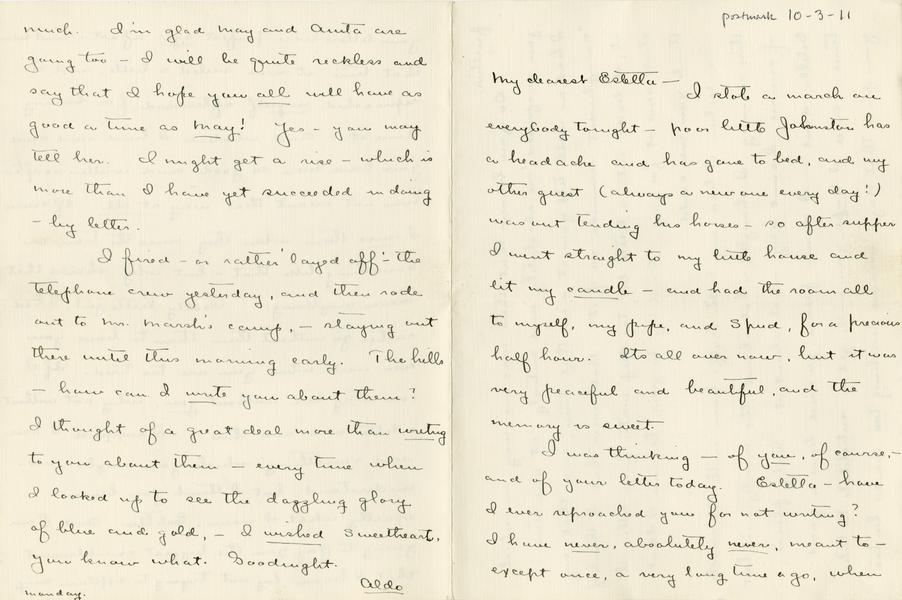 much. I'm glad May and Anita are
going too – I will be quite reckless and
say that I hope you all will have as
good a time as May! Yes – you may
tell her. I might get a rise – which is
more than I have yet succeeded in doing
– by letter.
I fired – or rather "layed off" – the
telephone crew yesterday, and then rode
out to Mr. Marsh's camp, – staying out
there until this morning early. The hills
– how can I write you about them?
I thought of a great deal more than writing
to you about them – every time when
I looked up to see the dazzling glory
of blue and gold, – I wished Sweetheart,
you know what. Goodnight.
Aldo
Monday.
postmark 10-3-11
My dearest Estella –
I stole a march on
everybody tonight – poor little Johnston has
a headache and has gone to bed, and my
other guest (always a new one every day!)
was out tending his horses – so after supper
I went straight to my little house and
lit my candle – and had the room all
to myself, my pipe, and Spud, for a precious
half hour. Its all over now, but it was
very peaceful and beautiful, and the
memory is sweet.
I was thinking – of you, of course, –
and of your letter today. Estella – have
I ever reproached you for not writing?
I have never, absolutely never, meant to –
except once, a very long time ago, when